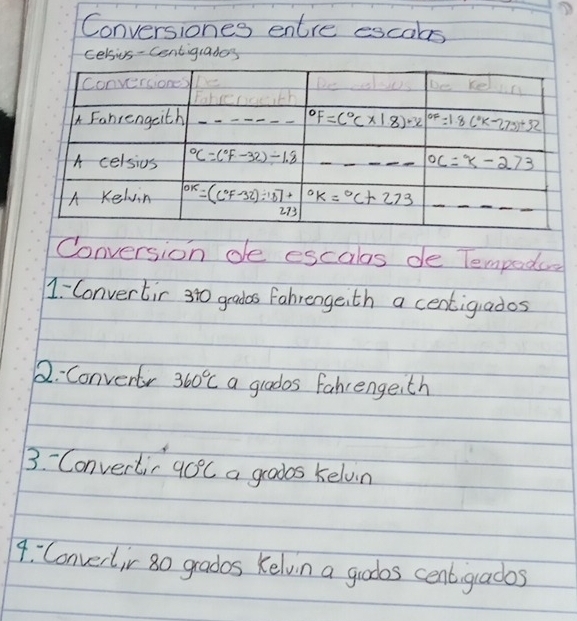 Conversiones entre escalas
celsius - Centigrados
Conversiones De Fahrengeith De celsius De Kelvin
A Fahrengeith - - - - - - - °F=(°C x 1.8)+32 °F=1.8(°K-273)+32
A celsius °C=(°F-32)÷1.8 - - - - - °C=°K-273
A Kelvin °K=[(°F-32)÷1.8]+273 °K=°C+273 - - - - -
Conversión de escalas de
1.-Convertir grados Fahrengeith a centigrados
2.-Convertir 360°C a grados Fahrengeith
3.-Convertir 90°C a grados Kelvin
4.-Convertir 80 grados Kelvin a grados centigrados